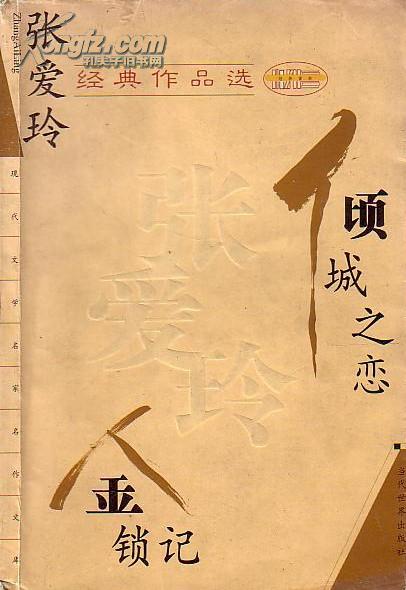 张爱玲
ZhangAiling
Kongfz.com
孔夫子旧书网
经典作品选
现代文学名家名作文库
张爱玲
倾城之恋
金锁记
当代世界出版社